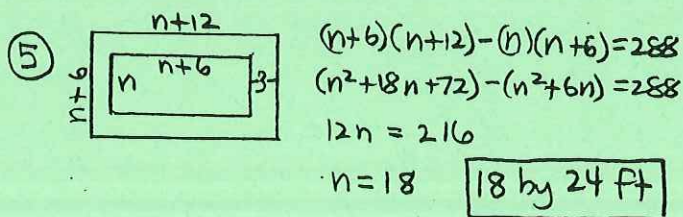 ⑤
n+12
n+6
n
n+6
3
(n+6)(n+12)-(n)(n+6)=288
(n²+18n+72)-(n²+6n)=288
12n = 216
n=18
18 by 24 ft